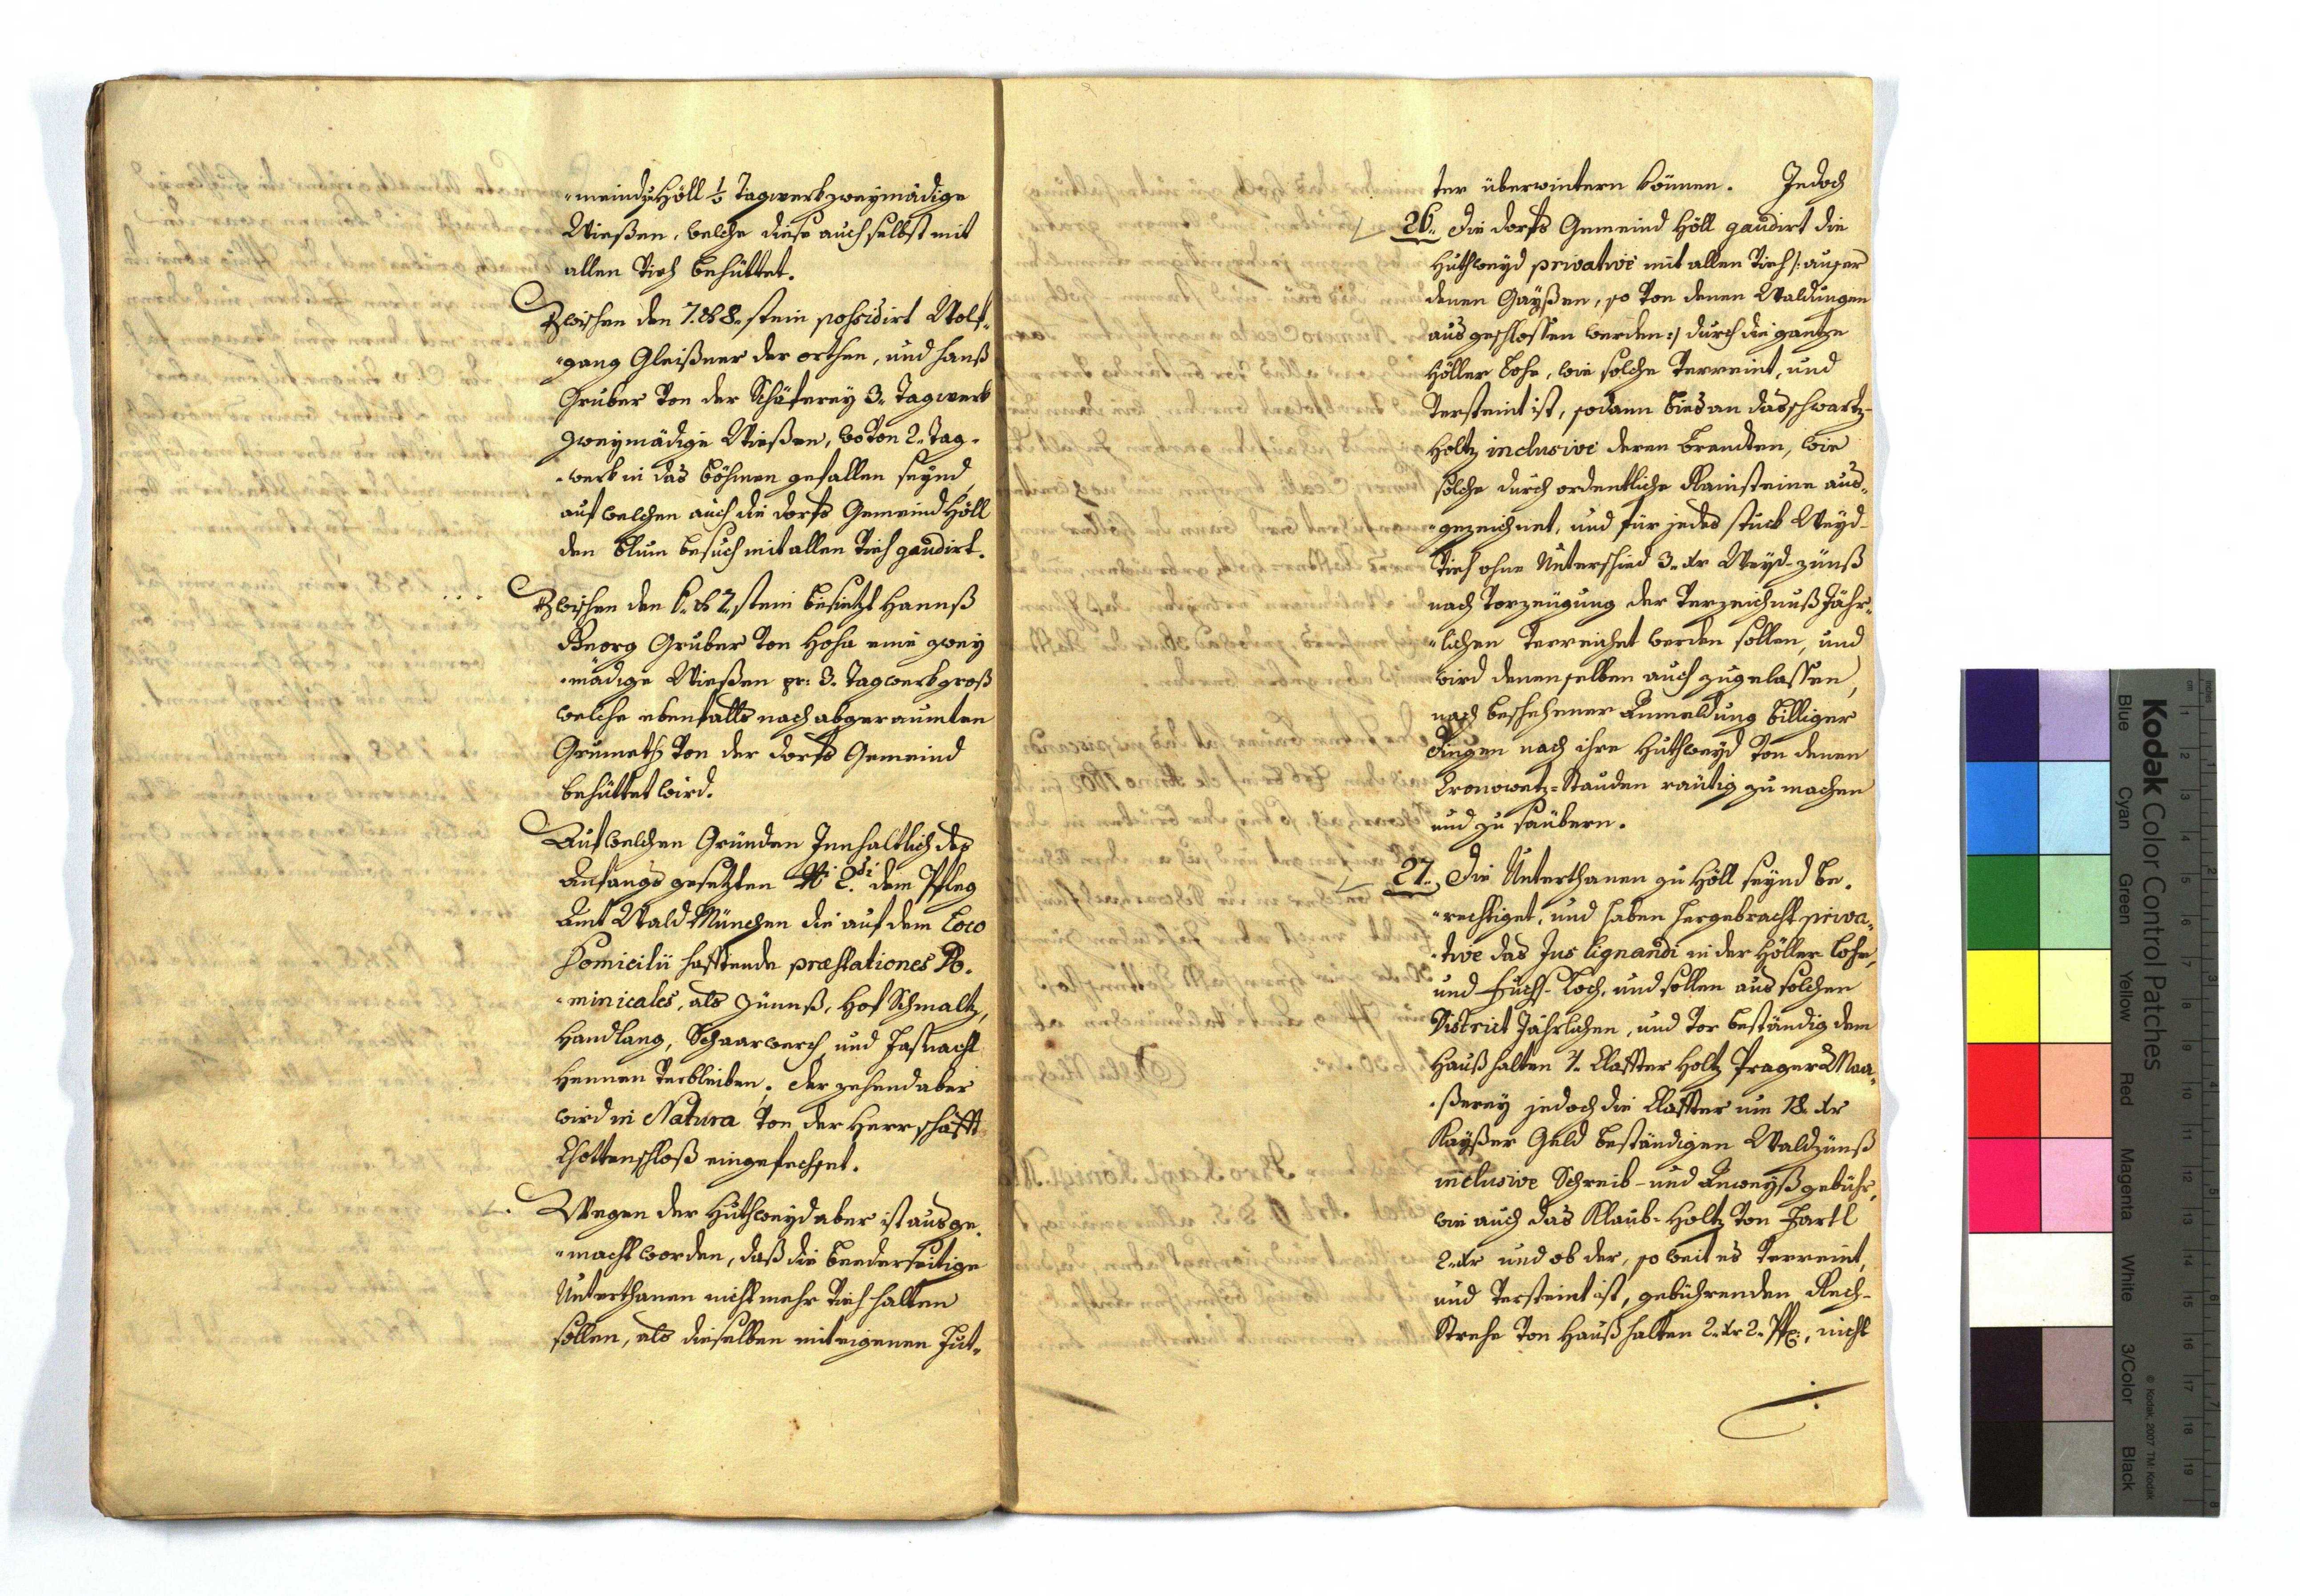 -meind Höll ½ Tagwerk zweymädige
Wießen, welche diese auch selbst mit
allen Vieh behüttet.
Zwischen den 7. & 8. stein possidirt Wolf-
-gang Gleißner der orthen, und Hanß
Gruber von der Schäferey 3. Tagwerk
zweymädige Wießen, wovon 2. Tag-
-werk in das Böhmen gefallen seynd,
auf welchen auch die Dorfs Gemeind Höll
den Blum besuch mit allen Vieh gaudirt.
Zwischen den 1. & 2. stein besietzt Hannß
Georg Gruber von Hoha eine zwey
-mädige Wießen pr: 3. Tagwerk groß
welche ebenfalls nach abgeraumten
Grumeth von der Dorfs Gemeind
behüttet wird.
Auf welchen Gründen Innhaltlich des
Anfangs gesetzten dem Pfleg
Amt Wald München die auf dem Loco
Domicilii hafftende præstationes Do-
-minicales, als Zünnß, Hof Schmaltz,
Handlang, Schaarwerch, und Faßnacht
Hennen verbleiben, der zehend aber
wird in Natura von der Herrschafft
Chottenschloß eingefechset.
Wegen der Huthweyd aber ist ausge-
-macht worden, daß die beederseitige
Unterthanen nicht mehr Vieh halten
sollen, als dieselben mit eigenen Fut-
ter überwintern können. Jedoch
26. Die Dorfs Gemeind Höll gaudirt die
Huthweyd privativè mit allen Vieh /: auser
denen Gayßen, so von denen Waldungen
ausgeschlossen werden :/ durch die gantze
Höller Lohe, wie solche verreint, und
versteint ist, sodann bies an das schwartz-
Holtz inclusivè deren Brendten, wie
solche durch ordentliche Rainsteine aus-
-gezeichnet, und für jedes stuck Weyd-
Vieh ohne Unterschied 3. xr Weyd-zünß
nach Vorzeugung der Verzeichnuß Jähr-
-lichen verreichet werden sollen, und
wird denenselben auch zugelassen,
nach beschehener Anmeldung billiger
dingen nach ihre Huthweyd von denen
Cronowetz-Stauden räutig zu machen
und zu säubern.
27. Die Unterthanen zu Höll seynd be-
-rechtiget, und haben hergebracht priva-
-tive das Jus lignandi in der Höller Lohe,
und Fuchs-Loch, und sollen aus solchen
District Jährlichen, und vor beständig dem
Haußhalten 4. Claffter Holtz Prager Maa-
-ßerey jedoch die Claffter um 18. xr
Kayßer Geld beständigen Waldzünß
inclusive Schreib- und Anweyßgebühr,
wie auch das Klaub-Holtz von Fartl
2. xr und ob der, so weit es verreint,
und versteint ist, gebührenden Rech-
Strehe von Haußhalten 2. xr 2. Pf:, nicht
Kodak Color Control Patches
Blue Cyan Green Yellow Red Magenta White 3/Color Black
© Kodak, 2007 TM: Kodak
inches 1 2 3 4 5 6 7 8
cm 1 2 3 4 5 6 7 8 9 10 11 12 13 14 15 16 17 18 19